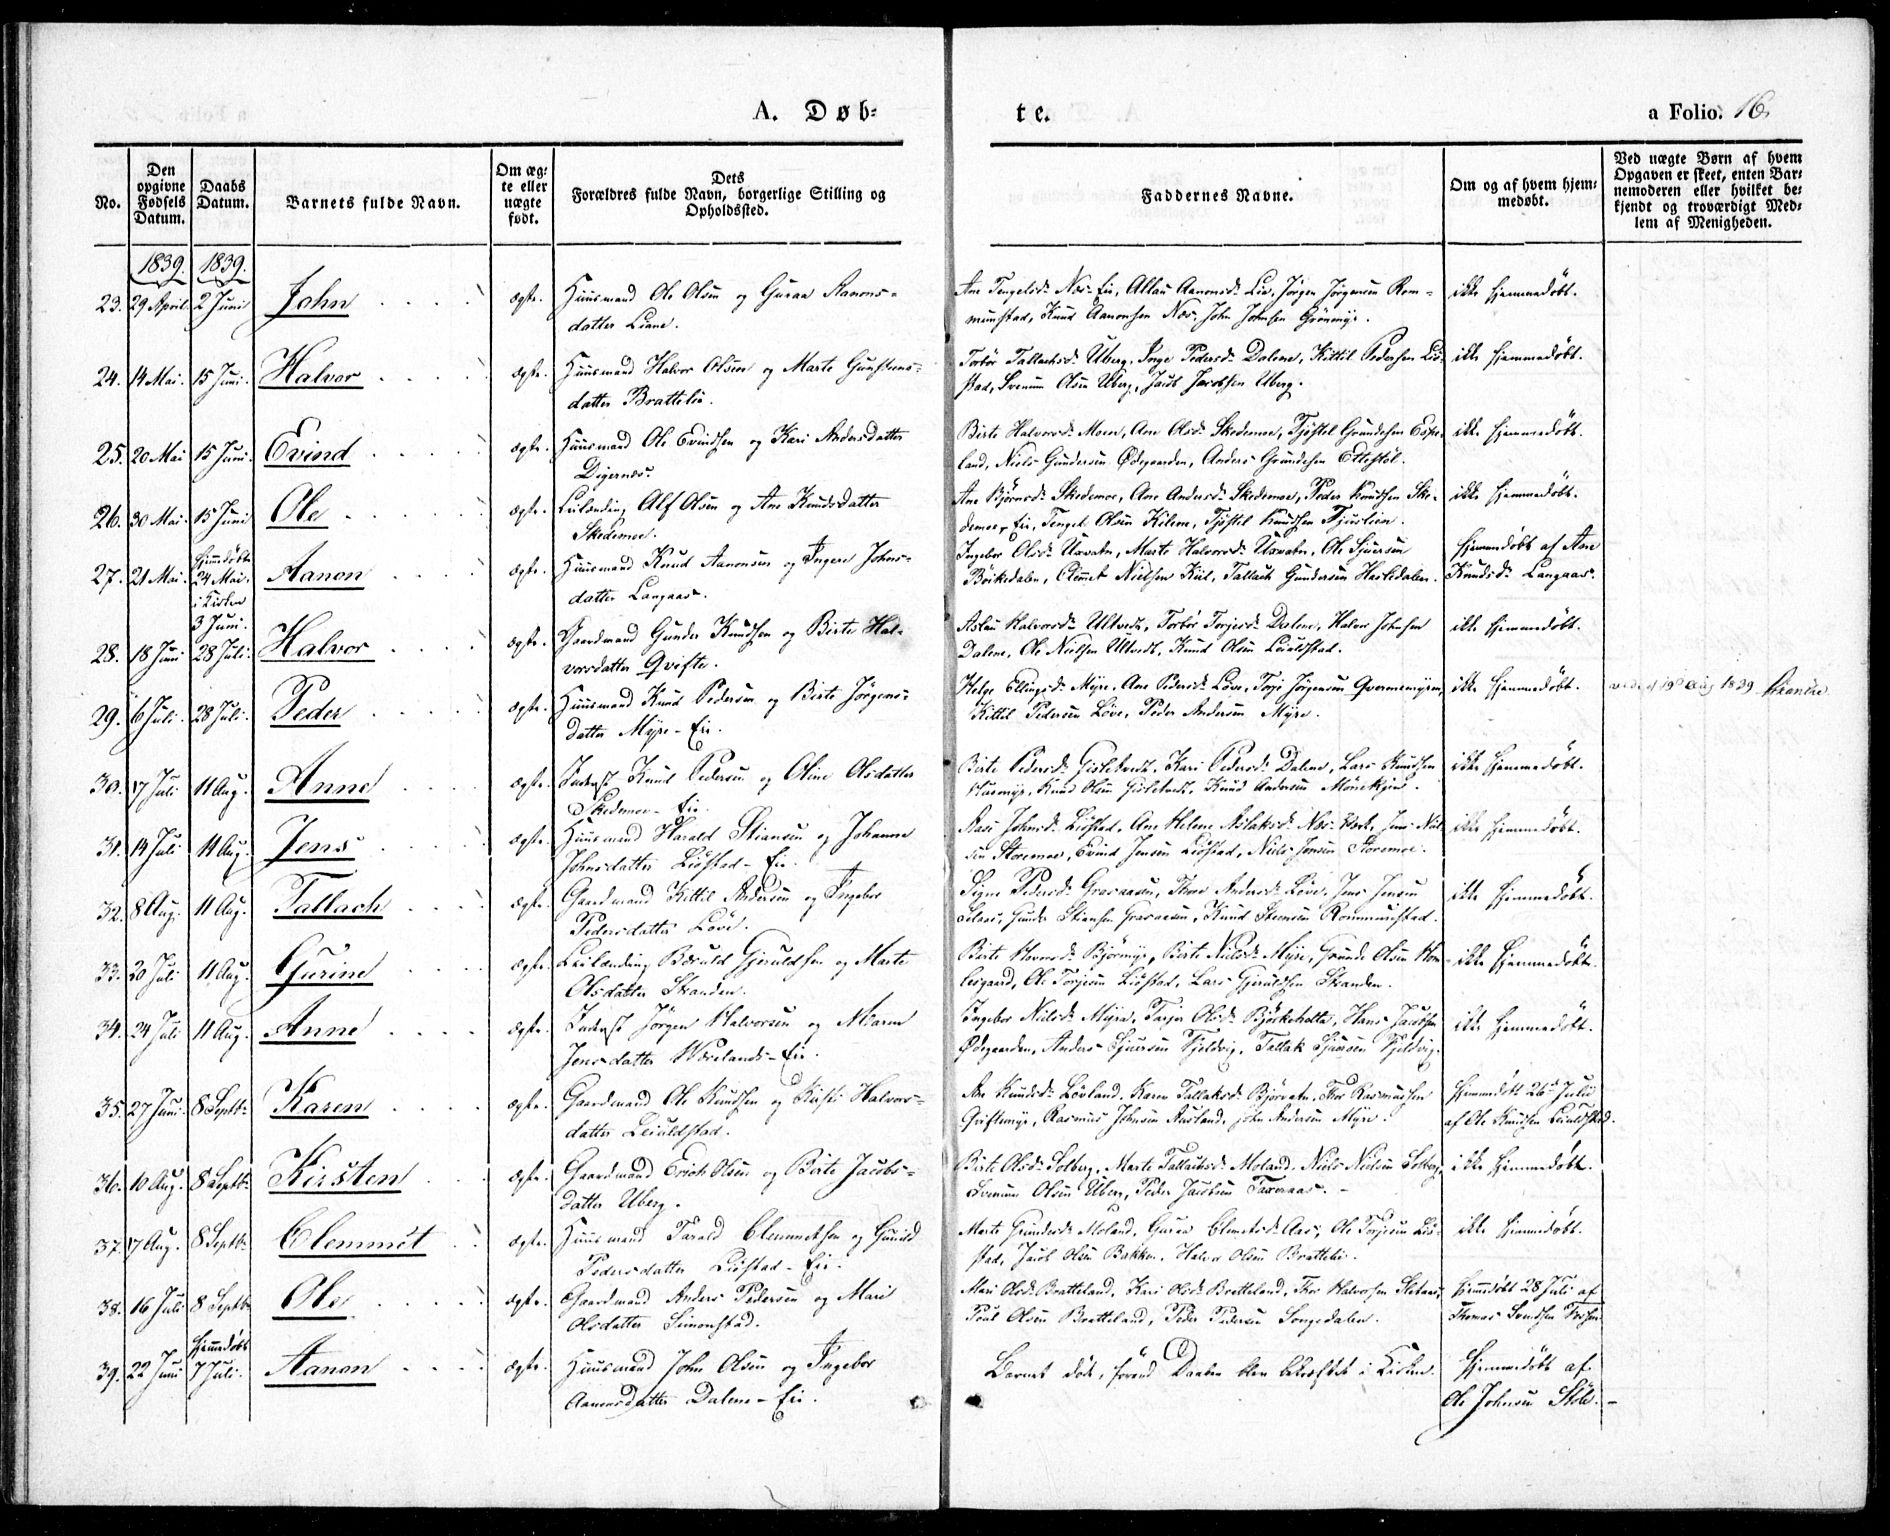 A. Døb=
te.
a Folio. 16.
No.
Den opgivne Fødsels Datum.
Daabs Datum.
Barnets fulde Navn.
Om æg=te eller uægte født.
Dets Forældres fulde Navn, borgerlige Stilling og Opholdssted.
Faddernes Navne.
Om og af hvem hjem=medøbt.
Ved uægte Børn af hvem Opgaven er skeet, enten Bar=nemoderen eller hvilket be=kjendt og troværdigt Med=lem af Menigheden.
1839. 1839.
23. 29 April. 2 Juni John ægte. Huusmand Ole Olsen og Guraa Aanons=
datter Liane.
Ane Tengelsd. Næs-Eie, Aanonsd. Lie, Jørgen Jørgensen Rom=
munstad, Knud Aanonsen Næs, John Johnsen Grönmyr.
ikke hjemmedøbt.
24. 14 Mai. 15 Juni. Halvor ægte. Huusmand Halvor Olsen og Marte Gunstens=
datter Brattelie.
Torbor Tallachsd. Uberg, Inge Pedersd. Dalene, Kittil Pedersen Lid=
stad, Svenum Olsen Uberg, Jacob Jacobsen Uberg.
ikke hjemmedøbt.
25. 20 Mai 15 Juni. Evind ægte. Huusmand Ole Evindsen og Kari Andersdatter
Digernæs.
Birte Halvorsd. Moen, Ane Olsd. Skedemoe, Tjöstel Grundesen Espe=
land, Niels Gundersen Ødegaarden, Anders Grundesen Ettestöl.
ikke hjemmedøbt.
26. 30 Mai. 15 Juni Ole ægte. Leilænding Alf Olsen og Ane Knudsdatter
Skedemoe.
Ane Björnsd. Skedemoe, Ane Andersd. Skedemoe, Peder Knudsen Ske=
demoe, Eie, Tengel Olsen Kilene, Tjöstel Knudsen Fjuslien.
ikke hjemmedøbt.
27. 21 Mai. hjemmedøbt 24 Mai. i Kirken 3 Juni. Aanon ægte. Huusmand Knud Aanonsen og Ingere Johns=
datter Langaas.
Ingebor Olsd. Uxvatn, Marte Halvorsd. Uxvatn, Ole Sjursen
Böikedalen, Clemet Nielsen Kiil, Tallach Gundersen Hasledalen.
hjemmedøbt af Ane
Knudsd. Langaas.
28. 18 Juni 28 Juli. Halvor ægte. Gaardmand Gunder Knudsen og Birte Hal=
vorsdatter Qvifte.
Aslau Halvorsd. Ultvedt, Torbör Torjesd. Dalene, Halvor Johnsen
Dalene, Ole Nielsen Ultvedt, Knud Olsen Leialdstad.
ikke hjemmedøbt.
29. 6 Juli. 28 Juli. Peder ægte. Huusmand Knud Pedersen og Birte Jörgens=
datter Myre-Eie.
Helge Ellingsd. Myre, Ane Pedersd. Löve, Torje Jörgensen Qvernemyren,
Kittil Pedersen Löve, Peder Andersen Myre.
ikke hjemmedøbt.
19de Aug 1839
30. 7 Juli 11 Aug. Anne ægte. Inderst Knud Pedersen og Oline Olsdatter
Skedemoe-Eie.
Birte Pedersd. Gislebredt, Kari Pedersd. Dalene, Lars Knudsen
Knud Olsen Gislebredt, Knud Andersen
ikke hjemmedøbt.
31. 14 Juli 11 Aug. Jens ægte. Huusmand Harald Stiansen og Johanne
Johnsdatter Lidstad-Eie.
Aase Johnsd. Lidstad, Ane Helene Aslaksd. Næs-Værk, Jens Niel=
sen Storemoe, Evind Jensen Lidstad, Niels Jensen Storemoe.
ikke hjemmedøbt.
32. 8 Aug. 11 Aug. Tallach ægte. Gaardmand Kittil Andersen og Ingebor
Pedersdatter Löve.
Signe Pedersd. Grasaasen, Thore Andersd. Löve, Jens Jensen
Selaas, Gunder Stiansen Grasaasen, Knud Steensen Rommunstad.
ikke hjemmedøbt.
33. 20 Juli 11 Aug. Gurine ægte. Leilænding Bæruld Gjeruldsen og Marte
Olsdatter Stranden.
Birte Hovorsd. Björmyr, Berte Nielsd. Myre, Grunde Olsen
Ole Torjesen Lidstad, Lars Gjeruldsen Stranden.
ikke hjemmedøbt.
34. 24 Juli 11 Aug. Anne ægte. Inderst Jörgen Halvorsen og Maren
Jensdatter Værelands-Eie.
Ingebor Nielsd. Myra, Tarjer Olsd. Björkeholta, Hans Jacobsen
Ødegaarden, Anders Sjursen Fjeldvig, Tallak Sjursen Fjeldvig.
ikke hjemmedøbt.
35. 27 Juni 8 Septb. Karen ægte. Gaardmand Ole Knudsen og Kirsti Halvors=
datter Leialdstad.
Ane Knudsd. Lövland, Karen Tallaksd. Björvatn, Thor Rasmussen
Qviftemyr, Rasmus Johnsen Aasland, John Andersen Myre.
hjemmedøbt 26de Julii
af Ole Knudsen Leialdstad.
36. 10 Aug. 8 Septb. Kirsten ægte. Gaardmand Erich Olsen og Birte Jacobs=
datter Uberg.
Birte Olsd. Solberg, Marte Tallachsd. Moland, Niels Nielsen Solberg,
Svenum Olsen Uberg, Peder Jacobsen Taxeraas.
ikke hjemmedøbt.
37. 7 Aug. 8 Septb. Clemmet ægte. Huusmand Tarald Clemmetsen og Gunild
Pedersdatter Lidstad-Eie.
Marte Gundersd. Moland, Guraa Clemetsd. Aas, Ole Torjesen Lid=
stad, Jacob Olsen Bakken, Halvor Olsen Brattelie.
ikke hjemmedøbt.
38. 16 Juli 8 Septb. Ole ægte. Gaardmand Anders Pedersen og Mari
Olsdatter Simonstad.
Mari Olsd. Bratteland, Kari Olsd. Bratteland, Thor Halvorsen
Poul Olsen Bratteland, Peder Pedersen Songedalen.
hjemmedøbt 28 Juli af
Thomas Svendsen
39. 22 Juni hjemmedøbt 7 Juli. Aanon ægte. Huusmand John Olsen og Ingebor
Aanonsdatter Dalene-Eie.
Barnet døde, førend Daaben blev bekræftet i Kirken.
hjemmedøbt af
Ole Johnsen Stöle.